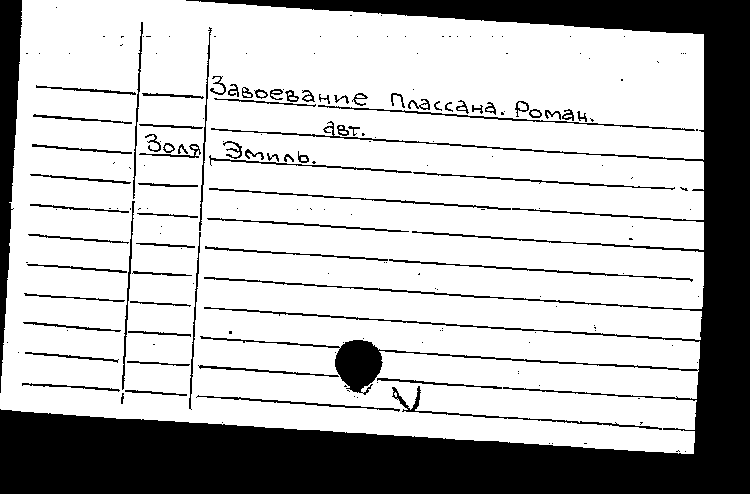 Завоевание Плассана. Роман.
авт.
Золя, Эмиль.